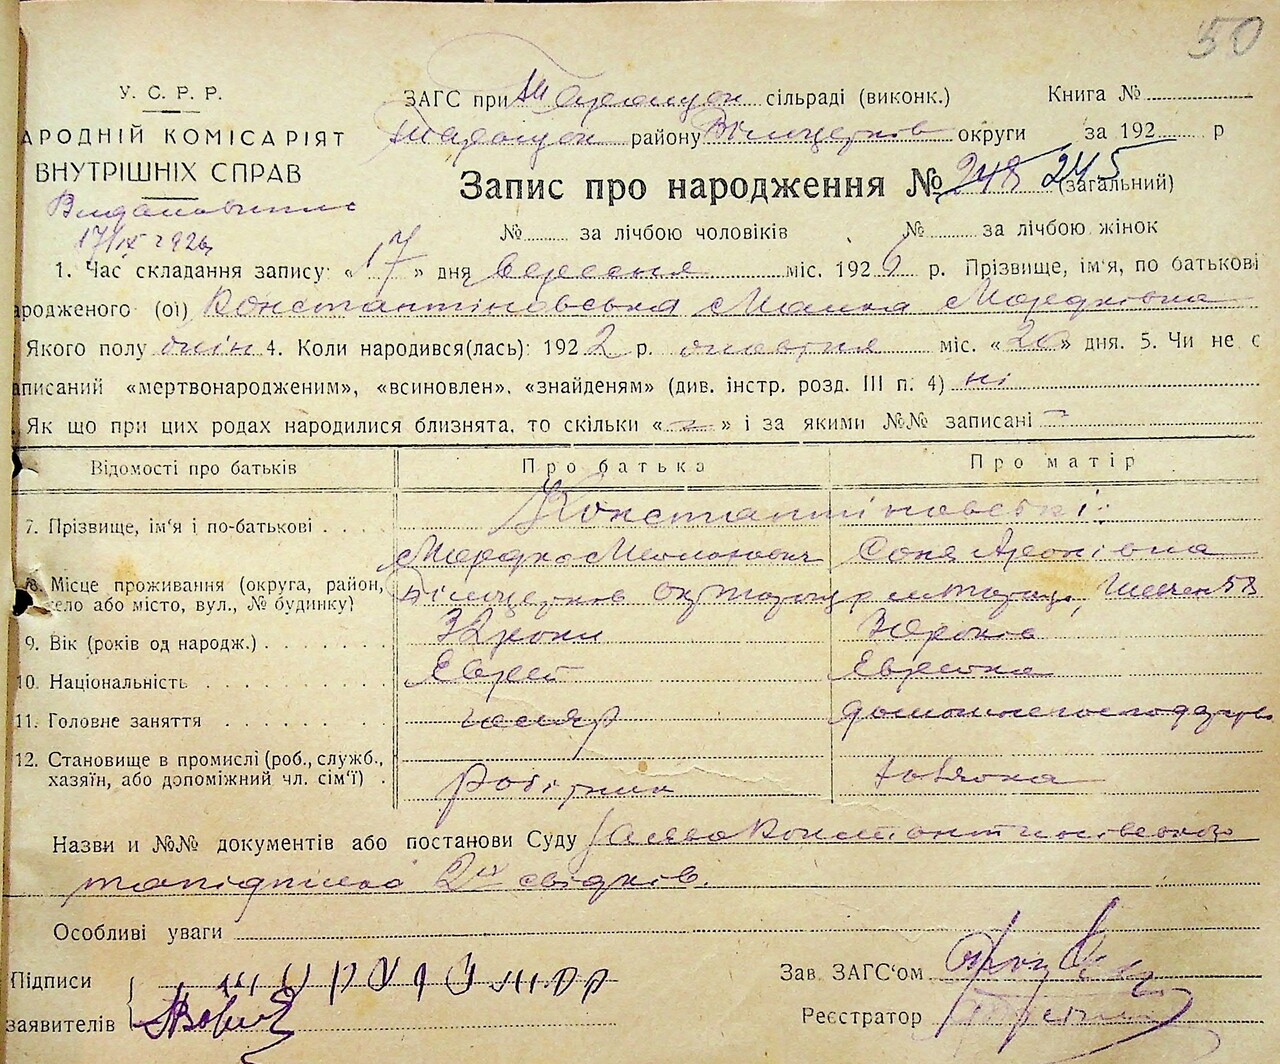 50
У. С. Р. Р.
АРОДНІЙ КОМІСАРІЯТ
ВНУТРІШНІХ СПРАВ
17/IX 1926
ЗАГС при Таращан сільраді (виконк.) Книга №
Таращан району Білоцерків округи за 192 р
Запис про народження № 248 245 (загальний)
№ за лічбою чоловіків № за лічбою жінок
1. Час складання запису: « 17 » дня вересня міс. 1926 р. Прізвище, ім'я, по батькові
ародженого (ої) Константіновська Манка Мордківна
Якого полу жін 4. Коли народився(лась): 1922 р. жовтня міс. «20» дня. 5. Чи не є
аписаний «мертвонародженим», «всиновлен», «знайденям» (див. інстр. розд. III п. 4) ні
Як що при цих родах народилися близнята, то скільки « » і за якими №№ записані
Відомості про батьків Про батька Про матір
7. Прізвище, ім'я і по-батькові Константіновські:
Мордко Соня Аронівна
8. Місце проживання (округа, район, село або місто, вул., № будинку) Білоцерків окр 58
9. Вік (років од народж.) 32 роки років
10. Національність Еврей Еврейка
11. Головне заняття тесляр домашнє господарство
12. Становище в промислі (роб., служб., хазяїн, або допоміжний чл. сім'ї) робітник
Назви и №№ документів або постанови Суду Заява Константіновського
та підписка 2х свідків.
Особливі уваги
Підписи
заявителів
Зав. ЗАГС'ом
Реєстратор